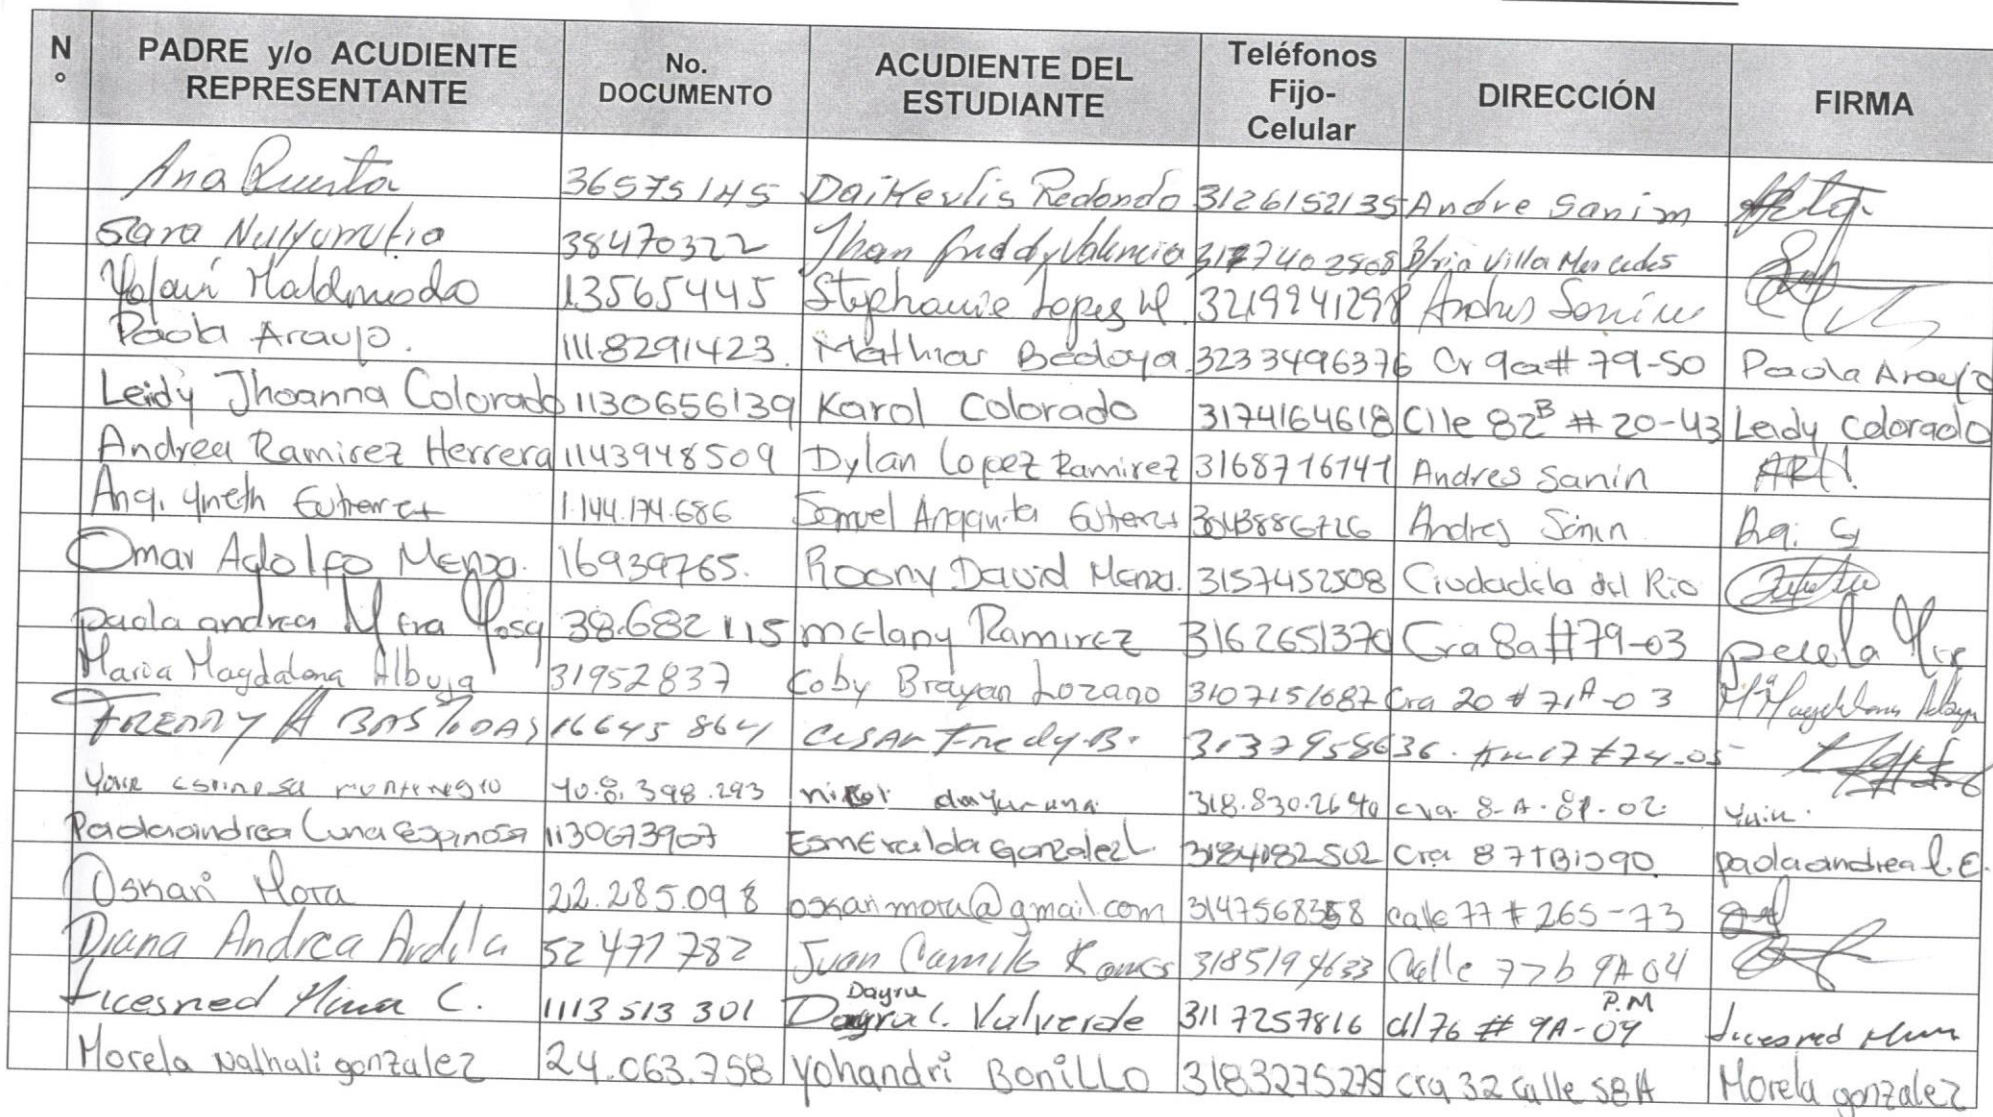 N° PADRE y/o ACUDIENTE REPRESENTANTE No. DOCUMENTO ACUDIENTE DEL ESTUDIANTE Teléfonos Fijo-Celular DIRECCIÓN FIRMA
Ana 36575145 Redondo 3126152135 Andre Sanim
Sara 38470322 Jhan freddy Valencia B/rio Villa Mercedes
Maldonado 13565445 Stephanie Lopez M. 3219241298 Andres
Paola Araujo. 1118291423. Mathias Bedoya 3233496376 Cr 9a # 79-50 Paola Araujo
Leidy Jhoanna Colorado 1130656139 Karol Colorado 3174164618 Clle 82B # 20-43 Leidy Colorado
Andrea Ramirez Herrera 1143948509 Dylan Lopez Ramirez 3168716141 Andres Sanin ARH.
1.144.174.686 Samuel Andres
Omar Adolfo Menza. 16939765. Roony David Menza. 3157452508 Ciudadela del Rio
paola andrea 38.682115 mElany Ramirez 3162651370 Cra 8a #79-03 paola
Maria Magdalena Albuja 31952837 Coby Brayan Lozano 3107151687 Cra 20 # 71A-03 Magdalena
FREDDY A BASTIDAS 16645864 CESAR Fredy B. 3137958636.
montenegro 318.830.2640 cra. 8-A-81-02.
Paolaandrea Luna Espinosa 1130673907 EsmEralda Gonzalez L. 3184182502 Cra paolaandrea l.E.
Oskari Mora 22.285.098 oskarimora@gmail.com calle 77 # 265-73
Diana Andrea Ardila 52 477 782 Juan Camilo Ramos 3185194633 Calle 77b 9A 04
C. 1113 513 301 Dayru Valverde 311 7257816 cl 76 # 9A-09 P.M
Morela Nathali gonzalez 24.063.758 Yohandri Bonillo 3183275275 cra 32 calle 58A Morela gonzalez